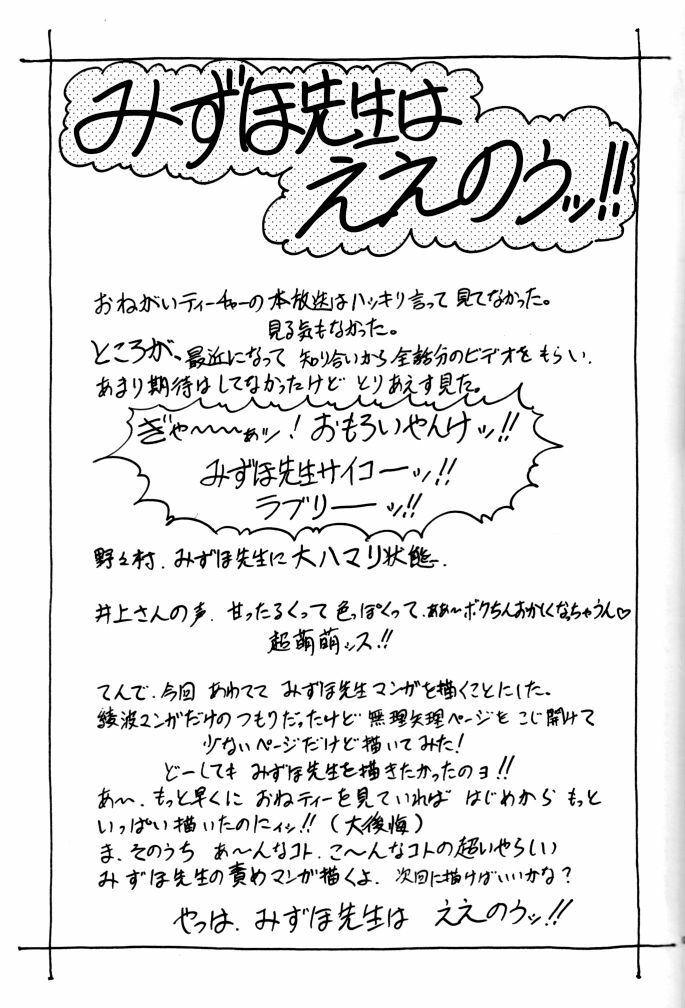 みずほ先生は
ええのうッ!!
おねがいティーチャーの本放送はハッキリ言って見てなかった。
見る気もなかった。
ところが、最近になって知り合いから全話分のビデオをもらい、
あまり期待はしてなかったけどとりあえず見た。
ぎゃ〜〜〜ぁッ!おもろいやんけッ!!
みずほ先生サイコーーッ!!
ラブリーーッ!!
野々村、みずほ先生に大ハマり状態。
井上さんの声、甘ったるくって色っぽくって、ああ〜ボクちんおかしくなっちゃうん♡
超萌萌ッス!!
てんで、今回あわててみずほ先生マンガを描くことにした。
綾波マンガだけのつもりだったけど無理矢理ページをこじ開けて
少ないページだけど描いてみた!
どーしてもみずほ先生を描きたかったのョ!!
あ〜、もっと早くにおねティーを見ていればはじめからもっと
いっぱい描いたのにィッ!!(大後悔)
ま、そのうちあ〜んなコト、こ〜んなコトの超いやらしい
みずほ先生の責めマンガ描くよ、次回に描けばいいかな?
やっは、みずほ先生はええのうッ!!